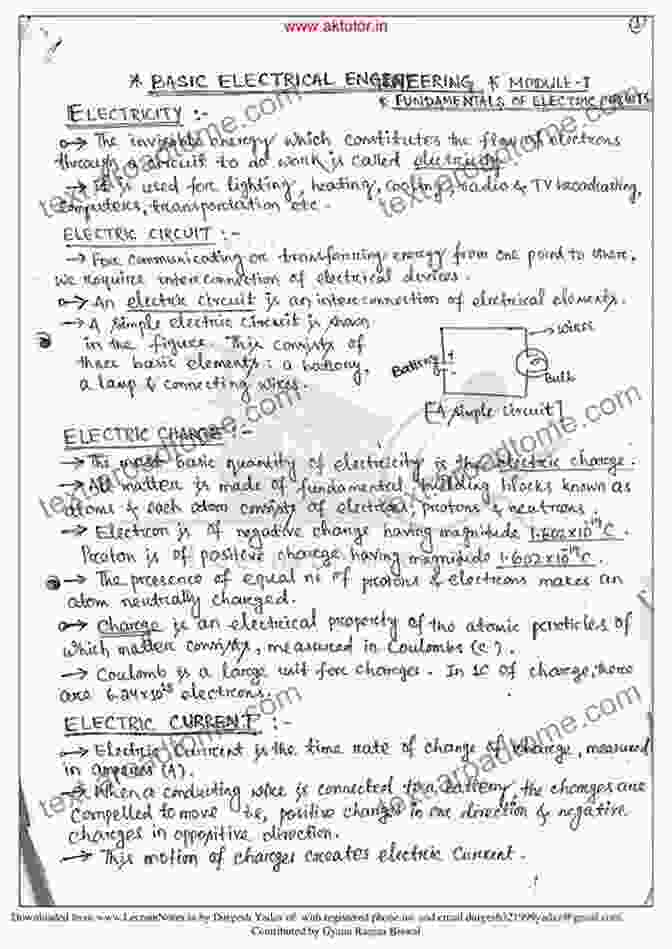 www.aktutor.in
1
* BASIC ELECTRICAL ENGINEERING * MODULE-I
* FUNDAMENTALS OF ELECTRIC CIRCUITS
ELECTRICITY :-
→ The invisible energy which constitutes the flow of electrons
through a circuit to do work is called electricity.
→ It is used for lighting, heating, cooling, radio & TV broadcasting,
computers, transportation etc.
ELECTRIC CIRCUIT :-
→ For communicating or transferring energy from one point to
we require interconnection of electrical devices.
→ An electric circuit is an interconnection of electrical elements.
→ A simple electric circuit is shown
in the figure. This consists of
three basic elements: a battery,
a lamp & connecting wires.
wires
Battery + -
Bulb
[A simple circuit]
ELECTRIC CHARGE :-
→ The most basic quantity of electricity is the electric charge.
→ All matter is made of fundamental building blocks known as
atoms & each atom consists of electrons, protons & neutrons.
→ Electron is of negative charge having magnitude 1.602×10⁻¹⁹C.
Proton is of positive charge having magnitude 1.602×10⁻¹⁹C.
→ The presence of equal no of protons & electrons makes an
atom neutrally charged.
→ Charge is an electrical property of the atomic particles of
which matter consists, measured in Coulombs (C).
→ Coulomb is a large unit for charges. In 1C of charge, there
are 6.24×10¹⁸ electrons.
ELECTRIC CURRENT :-
→ Electric Current is the time rate of change of charge, measured
in amperes (A).
→ When a conducting wire is connected to a battery, the charges are
compelled to move i.e, positive charges in one direction & negative
charges in opposite direction.
→ This motion of charges creates electric Current.
text.aroadtome.com
text.aroadtome.com
text.aroadtome.com
text.aroadtome.com
text.aroadtome.com
text.aroadtome.com
Downloaded from www.LectureNotes.in by Durgesh Yadav of with registered phone no and email
Contributed by Gyana Ranjan Biswal